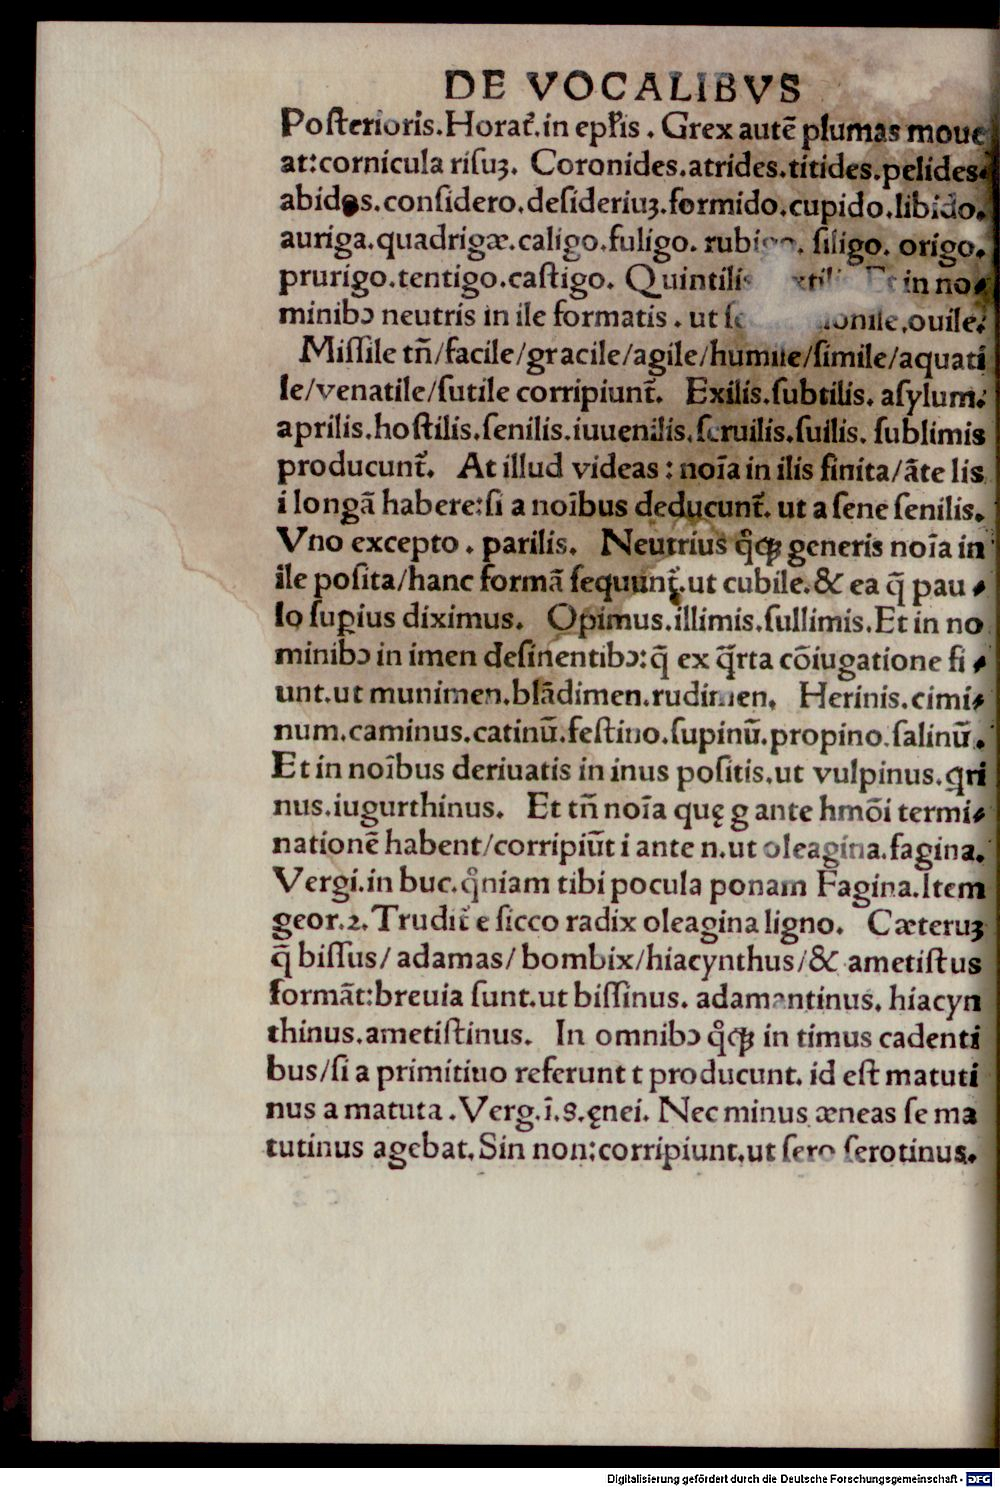 DE VOCALIBVS
Poſterioris.Horat᷑.in epr̃is . Grex autẽ plumas moue
at:cornicula riſuꝫ. Coronides.atrides.titides.pelides.
abidos.conſidero.deſideriuꝫ.formido.cupido.libido.
auriga.quadrigæ.caligo.fuligo. rubigo. ſiligo. origo.
prurigo.tentigo.caſtigo. Quintilis Et in no⸗
minibꝰ neutris in ile formatis . ut monile.ouile.
Miſſile tñ/facile/gracile/agile/humile/ſimile/aquati
le/venatile/ſutile corripiunt᷑. Exilis.ſubtilis. aſylum.
aprilis.hoſtilis.ſenilis.iuuenilis.ſeruilis.ſuilis. ſublimis
producunt᷑. At illud videas : noĩa in ilis finita/ãte lis
i longã habere:ſi a noĩbus deducunt᷑. ut a ſene ſenilis.
Vno excepto . parilis. Neutrius qͦꝗꝫ generis noĩa in
ile poſita/hanc formã ſequunt᷑.ut cubile.& ea q̃ pau ⸗
lo ſuꝑius diximus. Opimus.illimis.ſullimis.Et in no
minibꝰ in imen deſinentibꝰ:q̃ ex q̃rta cõiugatione fi ⸗
unt.ut munimen.blãdimen.rudimen. Herinis.cimi⸗
num.caminus.catinũ.feſtino.ſupinũ.propino.ſalinũ.
Et in noĩbus deriuatis in inus poſitis.ut vulpinus.qri
nus.iugurthinus. Et tñ noĩa quę g ante hmõi termi⸗
nationẽ habent/corripiũt i ante n.ut oleagina.fagina.
Vergi.in buc.qͦniam tibi pocula ponam Fagina.Item
geor.2.Trudit᷑ e ſicco radix oleagina ligno. Cæteruꝫ
q̃ biſſus/ adamas/ bombix/hiacynthus/& ametiſtus
formãt:breuia ſunt.ut biſſinus. adamantinus. hiacyn
thinus.ametiſtinus. In omnibꝰ qͦꝗꝫ in timus cadenti
bus/ſi a primitiuo referunt t producunt. id eſt matuti
nus a matuta .Verg.ĩ.8.ęnei. Nec minus æneas ſe ma
tutinus agebat.Sin non:corripiunt.ut ſero ſerotinus.
Digitalisierung gefördert durch die Deutsche Forschungsgemeinschaft - DFG